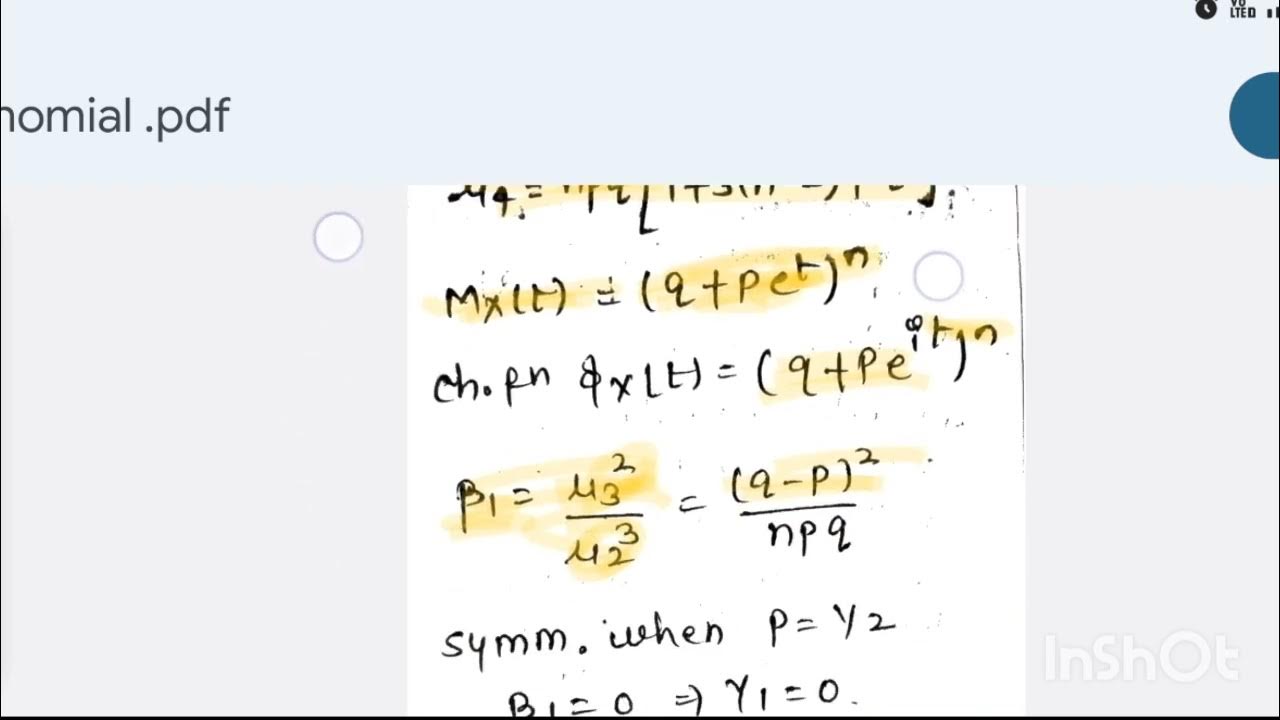 VO
LTED
nomial .pdf
μ4 = npq[1+3(n-2)p
Mx(t) = (q+pe^t)^n
ch.fn φx(t) = (q+pe^it)^n
β1 = μ3^2/μ2^3 = (q-p)^2/npq
symm. when p = 1/2
β1 = 0 ⇒ γ1 = 0.
InShOt